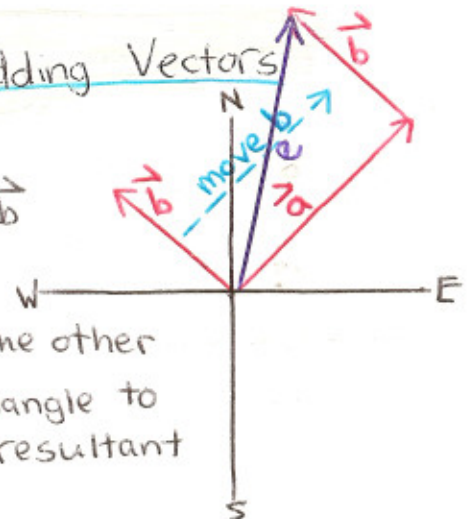 dding Vectors
N
b
move b
e
b
a
b
W
E
he other
angle to
resultant
S